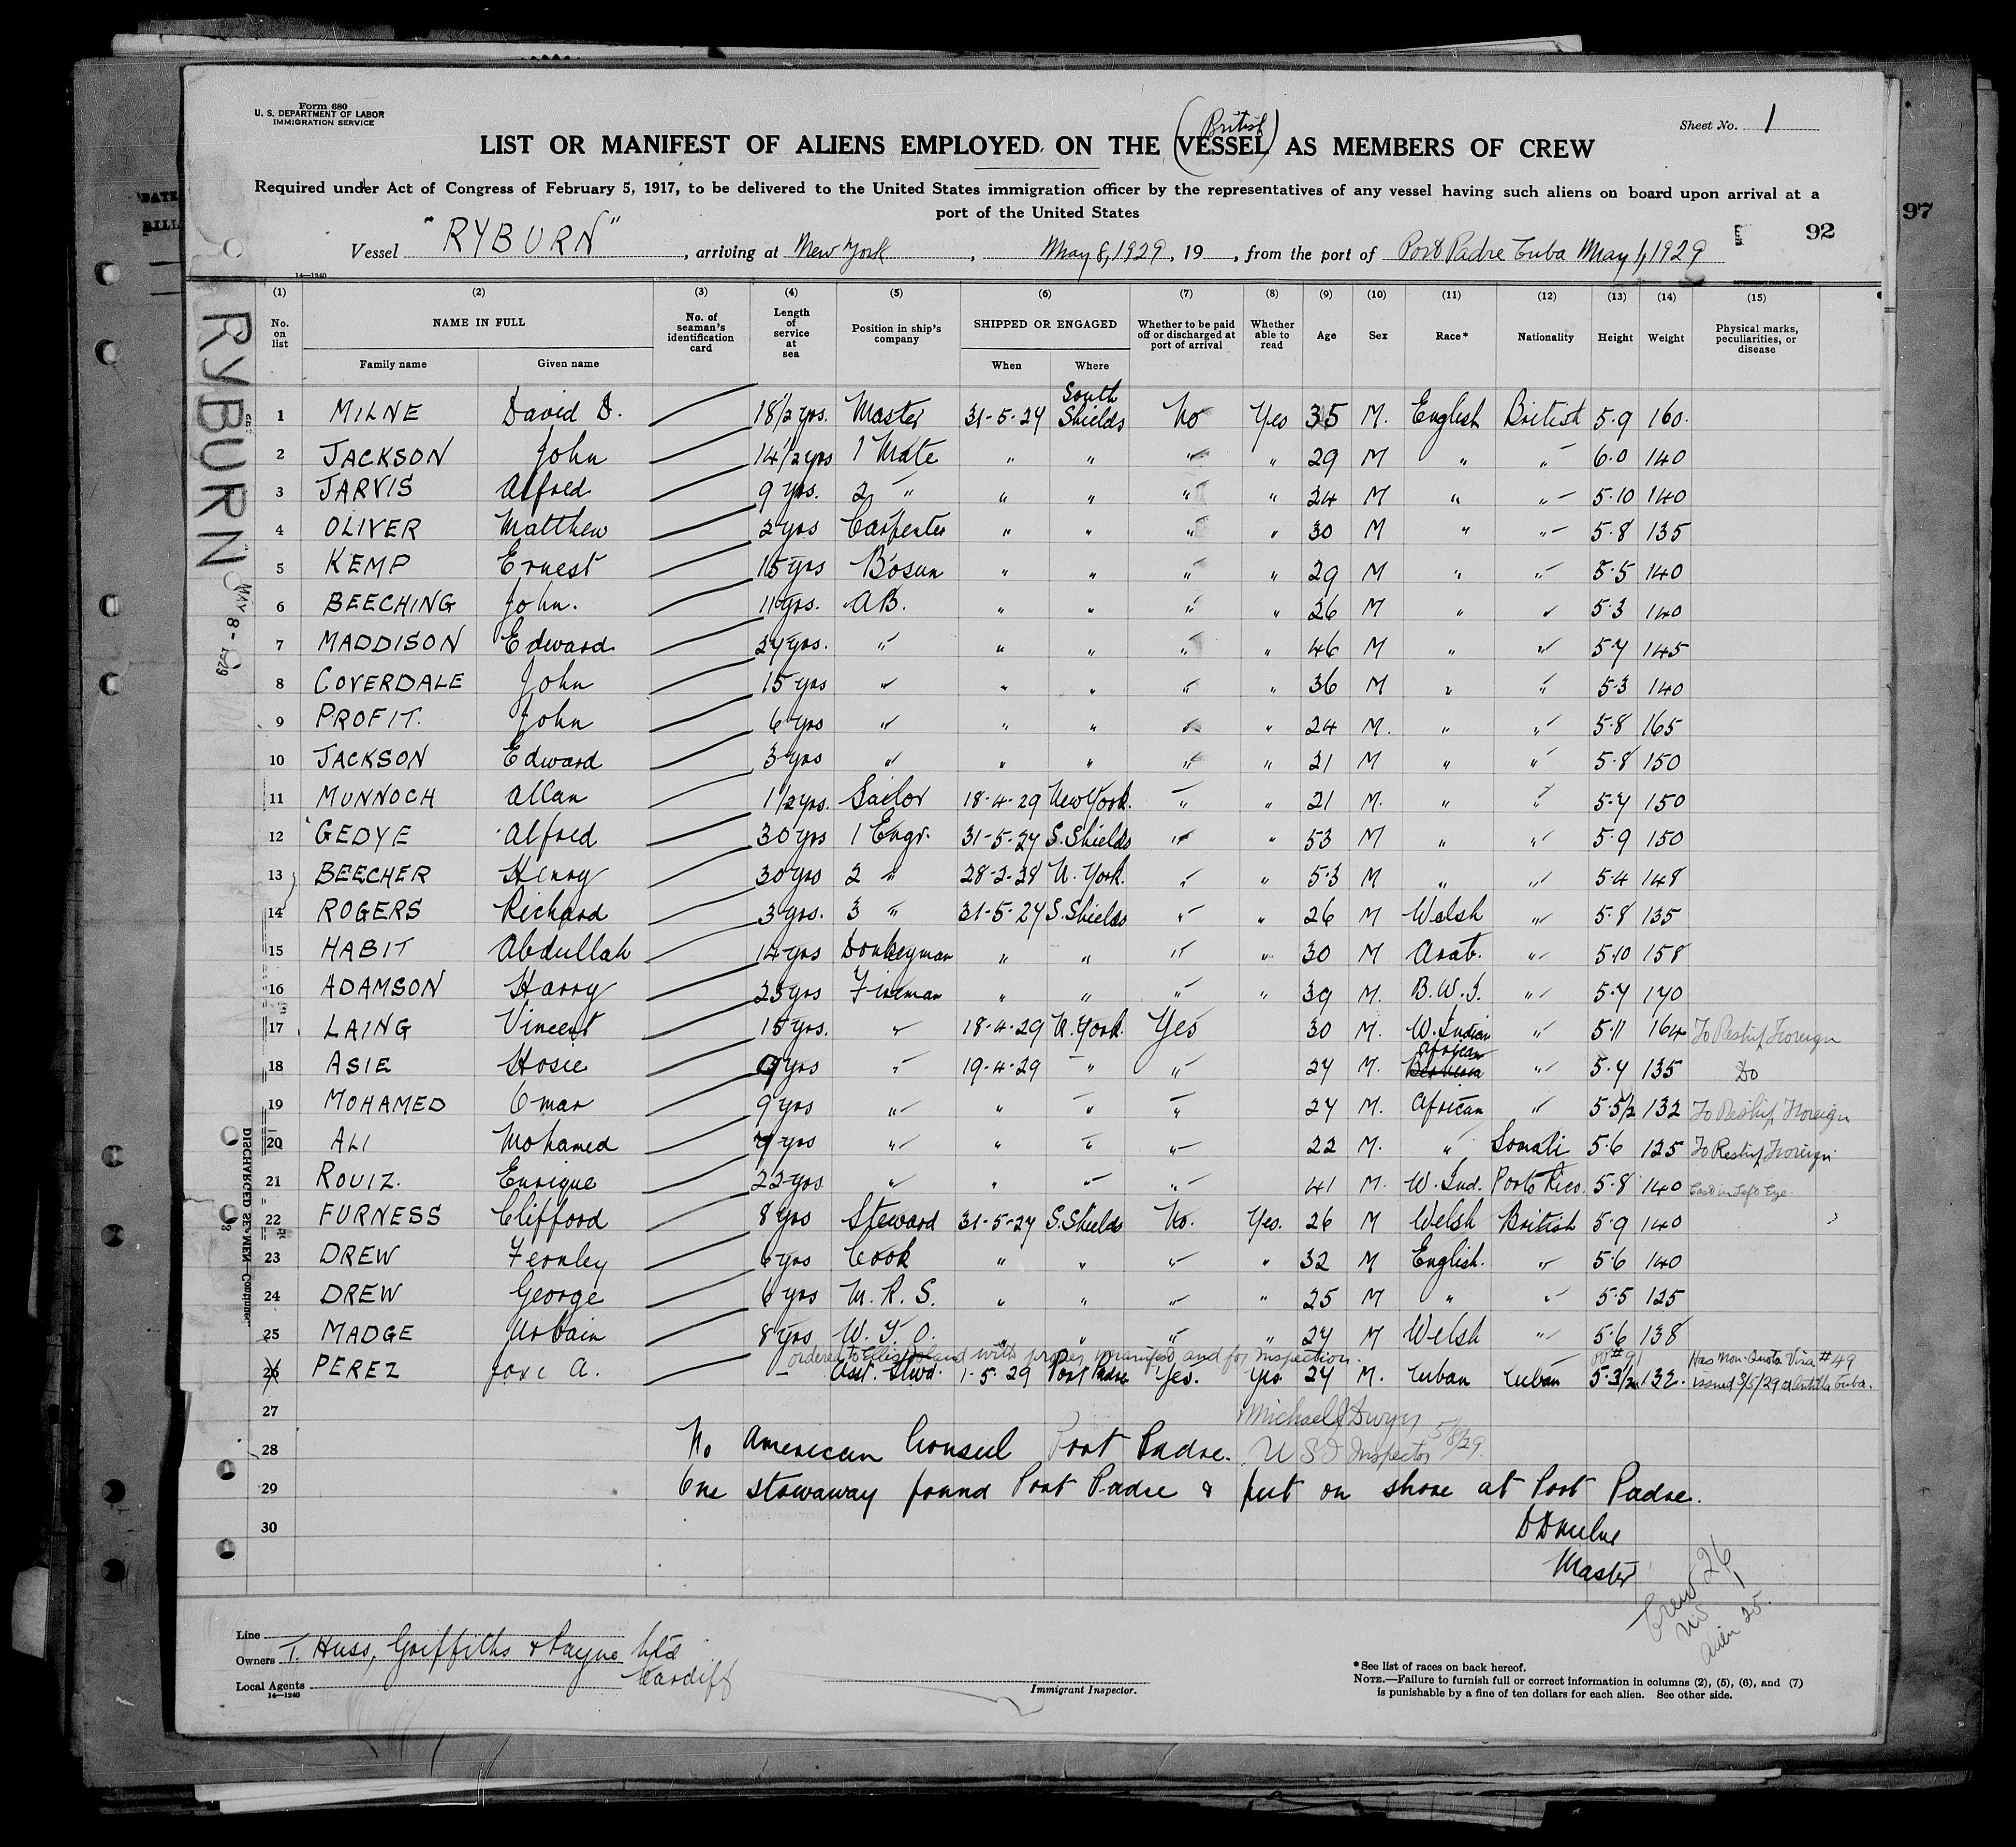 Form 680
U. S. DEPARTMENT OF LABOR
IMMIGRATION SERVICE
Sheet No. 1
(British)
LIST OR MANIFEST OF ALIENS EMPLOYED ON THE VESSEL AS MEMBERS OF CREW
Required under Act of Congress of February 5, 1917, to be delivered to the United States immigration officer by the representatives of any vessel having such aliens on board upon arrival at a
port of the United States
97
92
Vessel "RYBURN", arriving at New York, May 8, 1929, 19 , from the port of Port Padre Cuba May 1, 1929
14—1240
(1) (2) (3) (4) (5) (6) (7) (8) (9) (10) (11) (12) (13) (14) (15)
No. on list NAME IN FULL Family name Given name No. of seaman's identification card Length of service at sea Position in ship's company SHIPPED OR ENGAGED When Where Whether to be paid off or discharged at port of arrival Whether able to read Age Sex Race* Nationality Height Weight Physical marks, peculiarities, or disease
1 MILNE David D. 18 1/2 yrs. Master 31-5-27 South Shields No Yes 35 M. English British 5.9 160.
2 JACKSON John 14 1/2 yrs 1 Mate " " " " 29 M " " 6.0 140
3 JARVIS Alfred 9 yrs. 2 " " " " " 24 M " " 5.10 140
4 OLIVER Matthew 2 yrs Carpenter " " " " 30 M " " 5.8 135
5 KEMP Ernest 15 yrs Bosun " " " " 29 M " " 5.5 140
6 BEECHING John. 11 yrs. AB. " " " " 26 M " " 5.3 140
7 MADDISON Edward 27 yrs. " " " " " 46 M " " 5.7 145
8 COVERDALE John 15 yrs " " " " " 36 M " " 5.3 140
9 PROFIT. John 6 yrs " " " " " 24 M. " " 5.8 165
10 JACKSON Edward 3 yrs " " " " " 21 M " " 5.8 150
11 MUNNOCH Allan 1 1/2 yrs. Sailor 18-4-29 New York. " " 21 M. " " 5.7 150
12 GEDYE Alfred 30 yrs 1 Engr. 31-5-27 S. Shields " " 53 M " " 5.9 150
13 BEECHER Henry 30 yrs 2 " 28-2-28 N. York. " " 53 M " " 5.4 148
14 ROGERS Richard 3 yrs. 3 " 31-5-27 S. Shields " " 26 M Welsh " 5.8 135
15 HABIT Abdullah 14 yrs Donkeyman " " " " 30 M Arab. " 5.10 158
16 ADAMSON Harry 23 yrs Fireman " " " " 39 M. B.W.I. " 5.7 170
17 LAING Vincent 15 yrs. " 18-4-29 N. York. Yes 30 M. W. Indian " 5.11 164 To Reship Foreign
18 ASIE Hosie 9 yrs " 19-4-29 " " 27 M. African " 5.7 135 Do
19 MOHAMED Omar 9 yrs " " " " 27 M. African " 5.5 1/2 132 To Reship Foreign
20 ALI Mohamed 7 yrs " " " " 22 M. " Somali 5.6 125 To Reship Foreign
21 ROUIZ. Enrique 22 yrs " " " " 41 M. W. Ind. Porto Rico. 5.8 140 Cast in Left Eye.
22 FURNESS Clifford 8 yrs Steward 31-5-27 S. Shields No. Yes. 26 M Welsh British 5.9 140
23 DREW Fernley 6 yrs Cook " " " " 32 M English. " 5.6 140
24 DREW George 6 yrs M. R. S. " " " " 25 M " " 5.5 125
25 MADGE Urbain 8 yrs W. T. O. " " " " 27 M Welsh " 5.6 138
ordered to Ellis Island with proper manifest and for inspection.
26 PEREZ Jose A. - Asst. Stwd. 1-5.29 Port Padre Yes. Yes. 27 M. Cuban Cuban 5.3 1/2 132. Has Non-Quota Visa #49 issued 3/5/29 at Antilla Cuba.
27
Michael J Dwyer 5/8/29
28 No American Consul Port Padre. U S I Inspector
29 One stowaway found Port Padre & put on shore at Port Padre.
30
D D Milne
Master
Crew 26
US 1
Alien 25.
Line
Owners T. Huss, Griffiths & Payne Ltd Cardiff
Local Agents
14—1240
Immigrant Inspector.
*See list of races on back hereof.
NOTE.—Failure to furnish full or correct information in columns (2), (5), (6), and (7)
is punishable by a fine of ten dollars for each alien. See other side.
RYBURN
MAY 8 - 1929
DISCHARGED SEAMEN—Continued